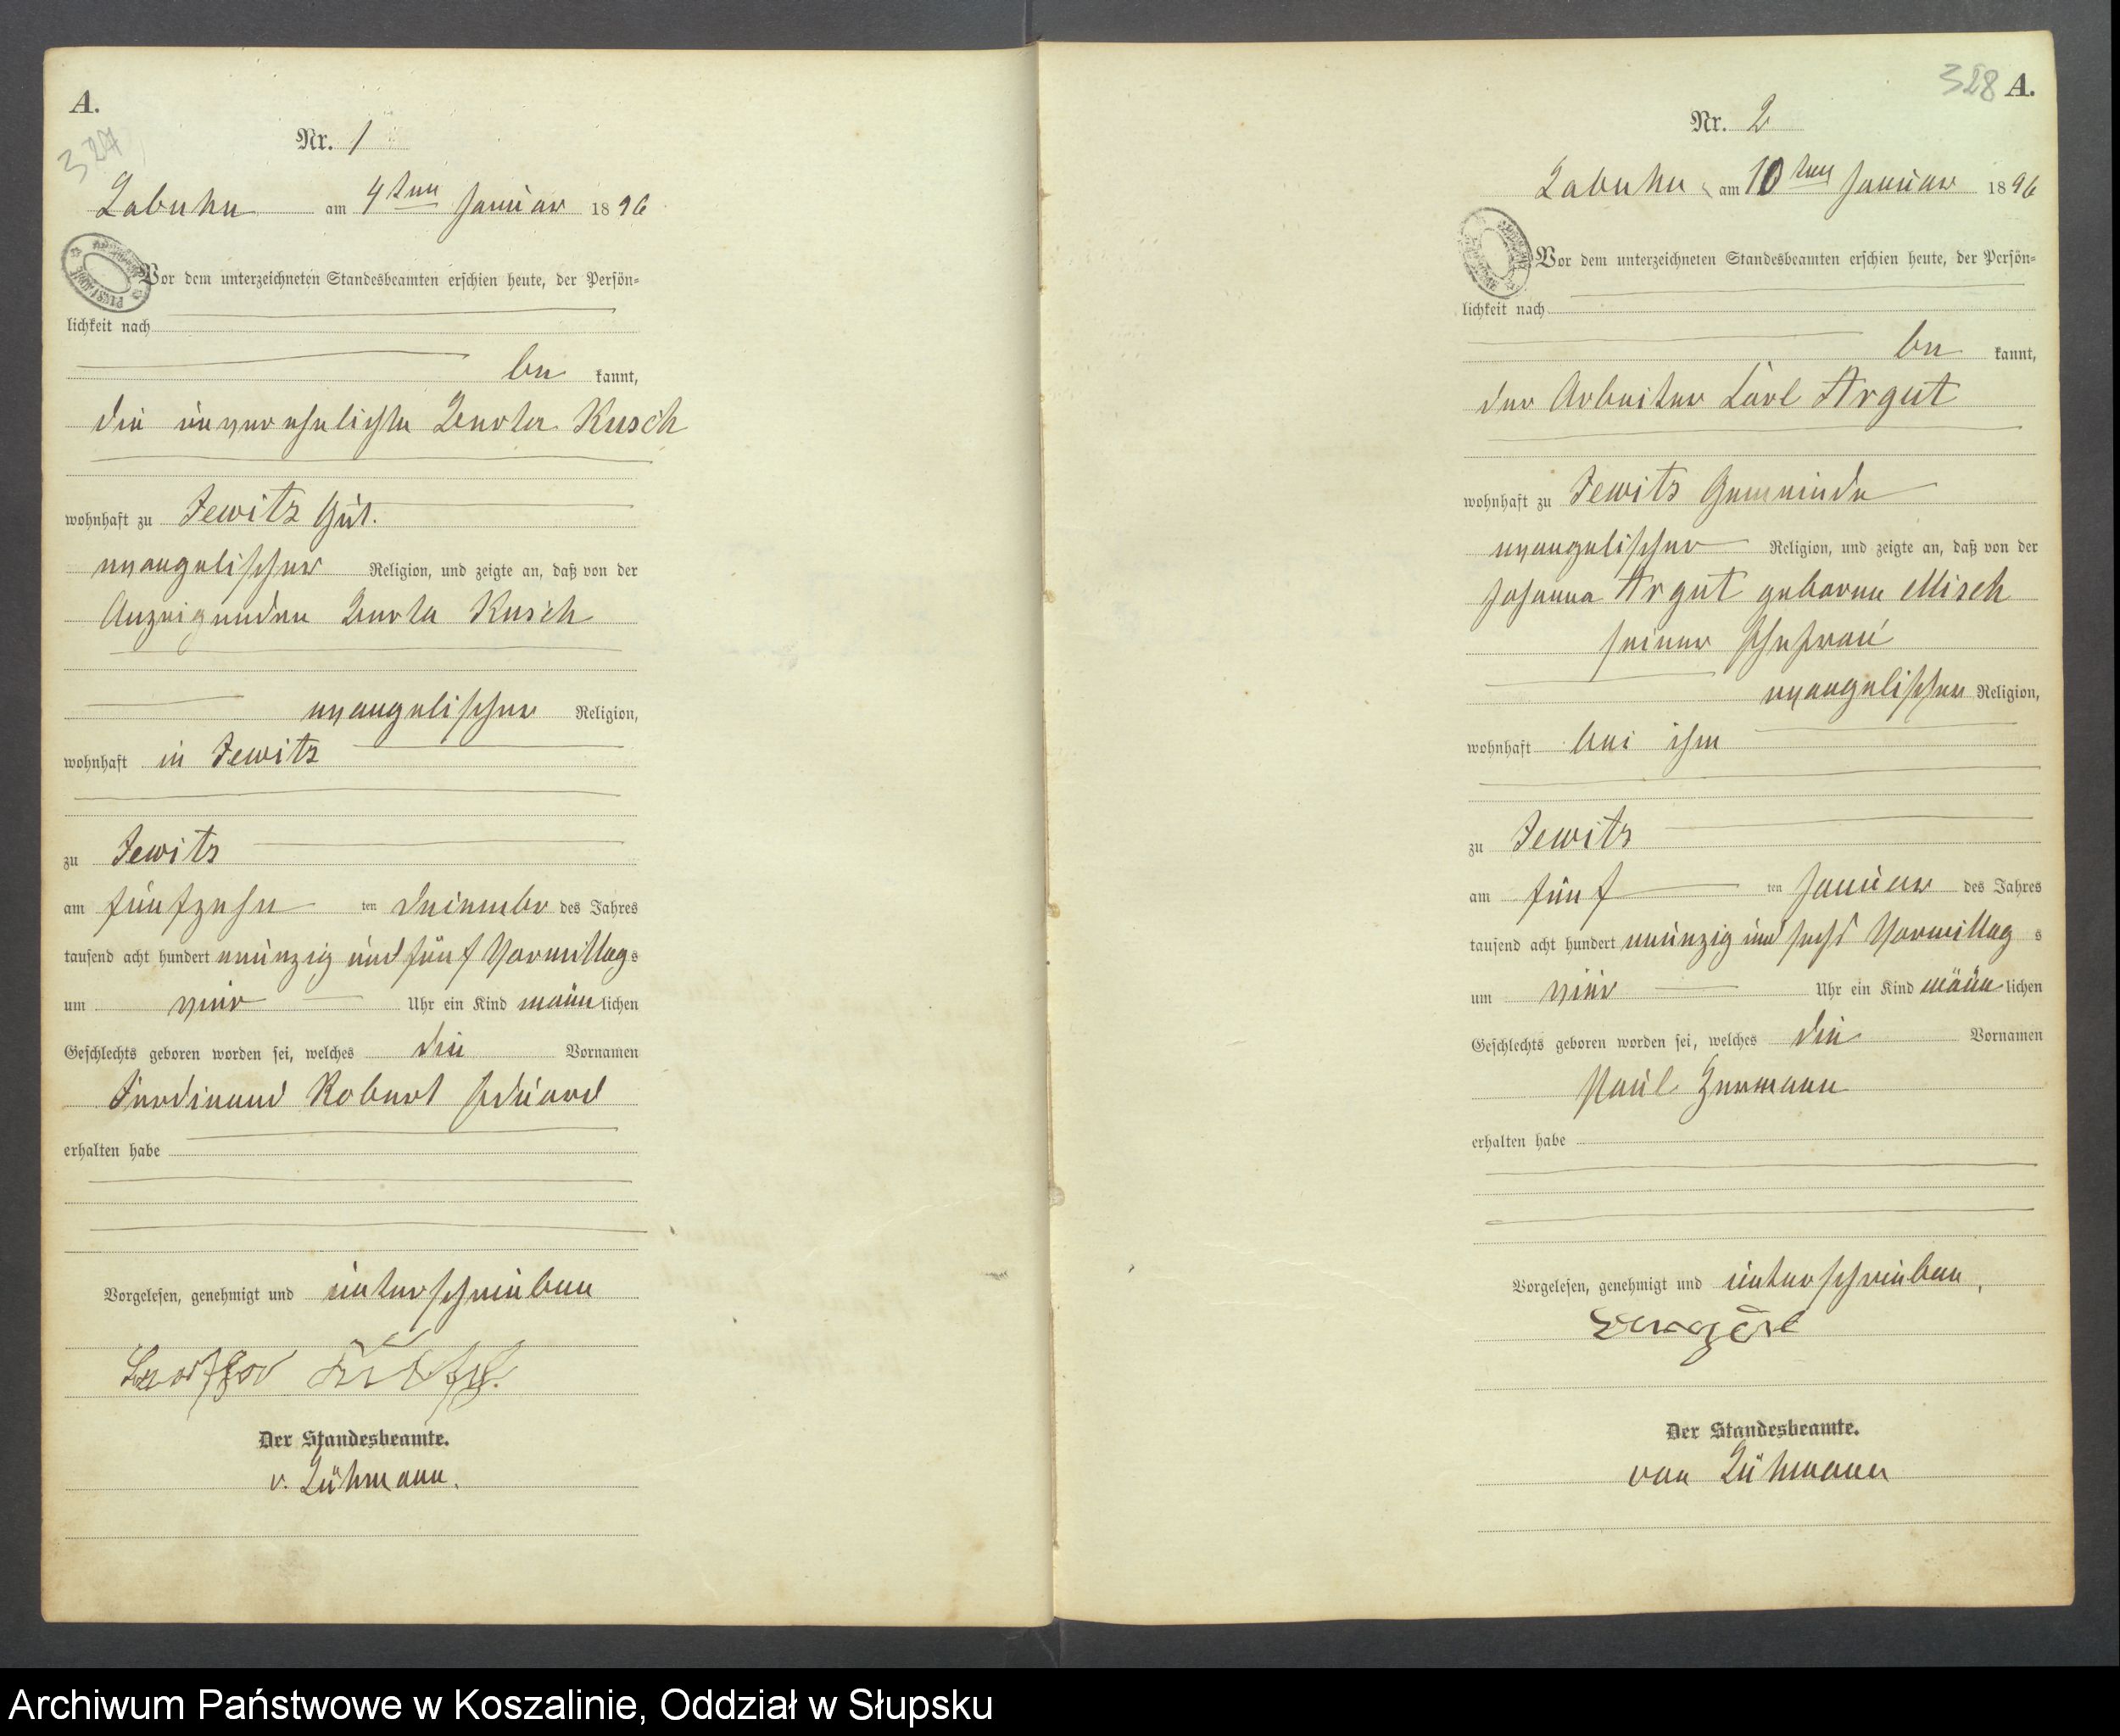 A.
327
Nr. 1
Labuhn am 4ten Januar 1896
Vor dem unterzeichneten Standesbeamten erschien heute, der Persön=
lichkeit nach
be kannt,
die unverehelichte Berta Kusch
wohnhaft zu Jewitz Gut.
evangelischer Religion, und zeigte an, daß von der
Anzeigenden Berta Kusch
evangelischer Religion,
wohnhaft in Jewitz
zu Jewitz
am fünfzehn ten Dezember des Jahres
tausend acht hundert neunzig und fünf Vormittags
um vier Uhr ein Kind männlichen
Geschlechts geboren worden sei, welches die Vornamen
Ferdinand Robert Eduard
erhalten habe
Vorgelesen, genehmigt und unterschrieben
Der Standesbeamte.
v. Lühmann.
328 A.
Nr. 2
Labuhn am 10ten Januar 1896
Vor dem unterzeichneten Standesbeamten erschien heute, der Persön=
lichkeit nach
be kannt,
der Arbeiter Carl Argut
wohnhaft zu Jewitz Gemeinde
evangelischer Religion, und zeigte an, daß von der
Johanna Argut geborene Misch
seiner Ehefrau
evangelischer Religion,
wohnhaft bei ihm
zu Jewitz
am fünf ten Januar des Jahres
tausend acht hundert neunzig und sechs Vormittag s
um vier Uhr ein Kind männlichen
Geschlechts geboren worden sei, welches die Vornamen
Paul Hermann
erhalten habe
Vorgelesen, genehmigt und unterschrieben,
Der Standesbeamte.
von Lühmann
Archiwum Państwowe w Koszalinie, Oddział w Słupsku